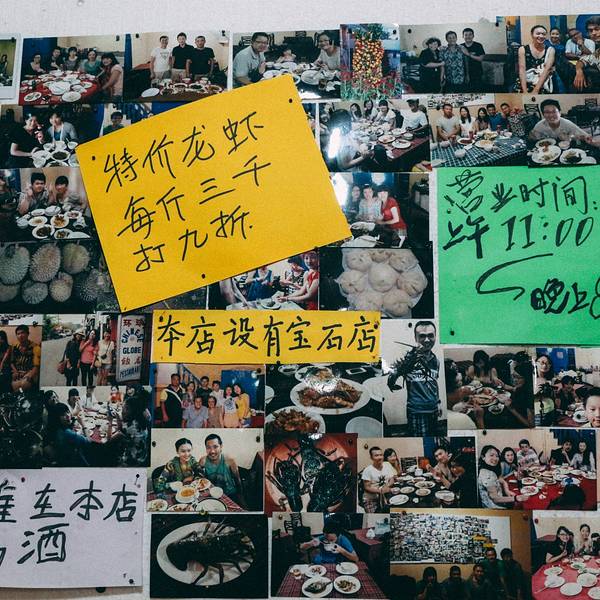 特价龙虾
每斤三千
打九折.
营业时间:
上午 11:00
晚上8
本店设有宝石店
在本店
酒
GLOBE